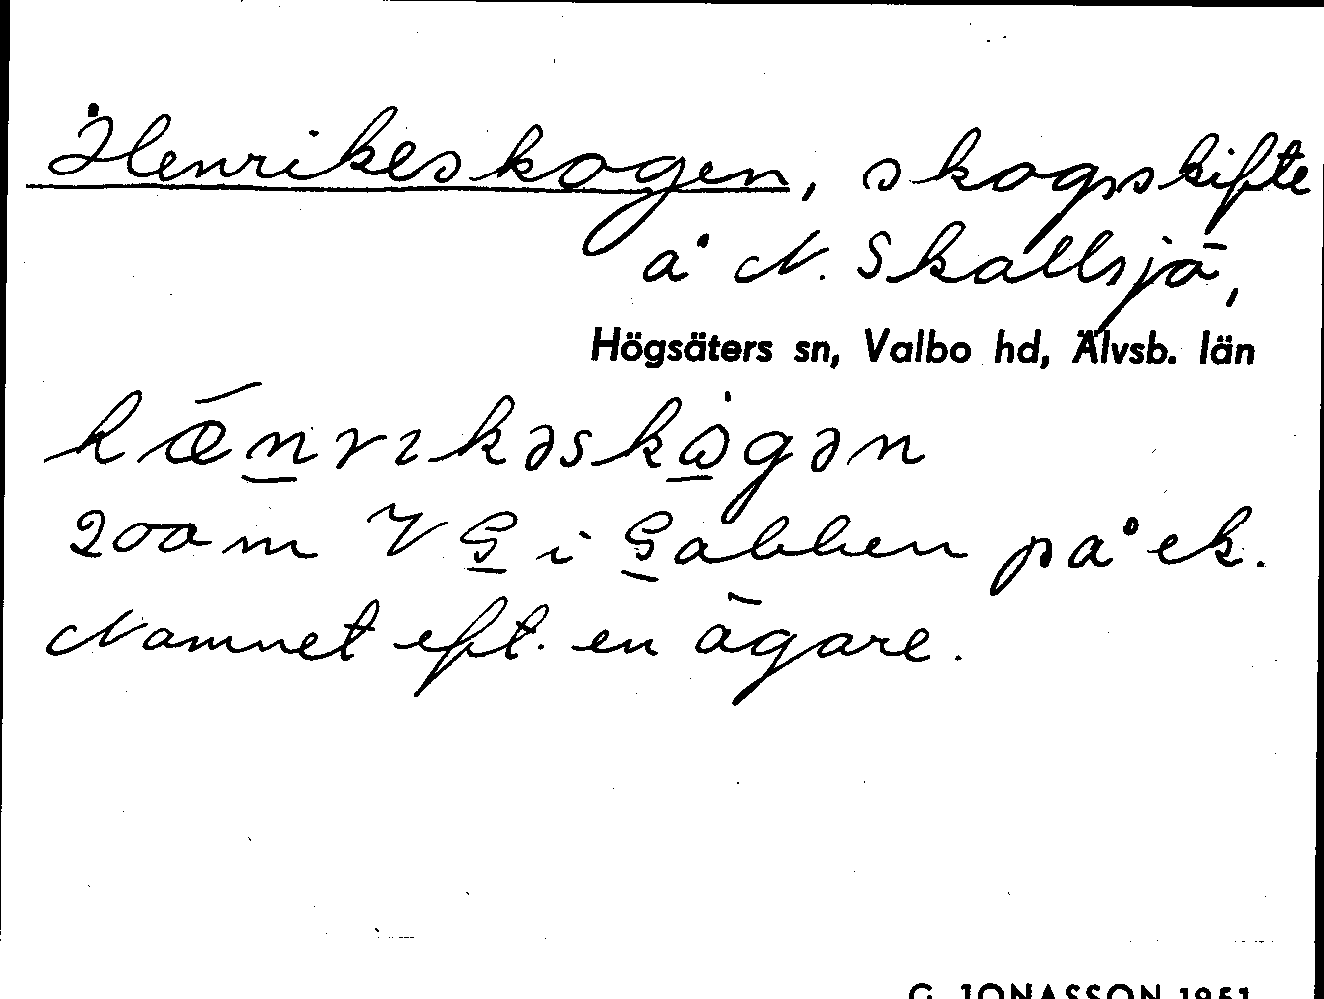 Henrikeskogen, skogsskifte
å N. Skallsjö,
Högsäters sn, Valbo hd, Älvsb. län
200 m V G i Gabben på ek.
Namnet eft. en ägare.
G. JONASSON 1951